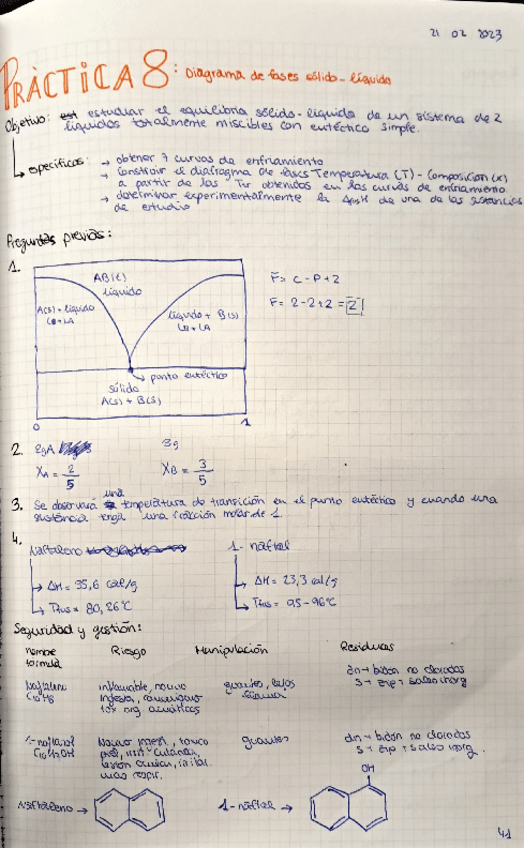 21 02 2023
PRÀCTICA 8: Diagrama de fases sólido-líquido
Objetivo: estudiar el equilibrio sólido-líquido de un sistema de 2
líquidos totalmente miscibles con eutéctico simple.
específicos: → obtener 7 curvas de enfriamiento
→ construir el diafragma de fases Temperatura (T) - Composición (x)
a partir de las Tur obtenidos en las curvas de enfriamiento
→ determinar experimentalmente la ΔfusH de una de las sustancias
de estudio
Preguntas previas:
1.
AB(l)
líquido
A(s) + líquido
LB+LA
líquido + B(s)
LB+LA
→ punto eutéctico
sólido
A(s) + B(s)
0 1
F = C - P + 2
F = 2-2+2 = 2
2. 2gA 3g
XA = 2/5 XB = 3/5
3. Se observará una temperatura de transición en el punto eutéctico y cuando una
sustancia tenga una fracción molar de 1.
4. Naftaleno
→ ΔH = 35,6 cal/g
→ Tfus = 80,26°C
1-naftol
→ ΔH = 23,3 cal/g
→ Tfus = 95-96°C
Seguridad y gestión:
nombre Riesgo Manipulación Residuos
fórmula
Naftaleno inflamable, nocivo guantes, lejos dn → bidón no clorados
C10H8 ingesta, llamas s → exp + sales inorg
tóx org. acuáticos
1-naftanol Nocivo ingest., tóxico guantes dn → bidón no clorados
C10H7OH piel, irrit cutánea, s → exp + sales inorg.
lesión ocular, irritar
vías respir.
Naftaleno → 1-naftol →
OH
41